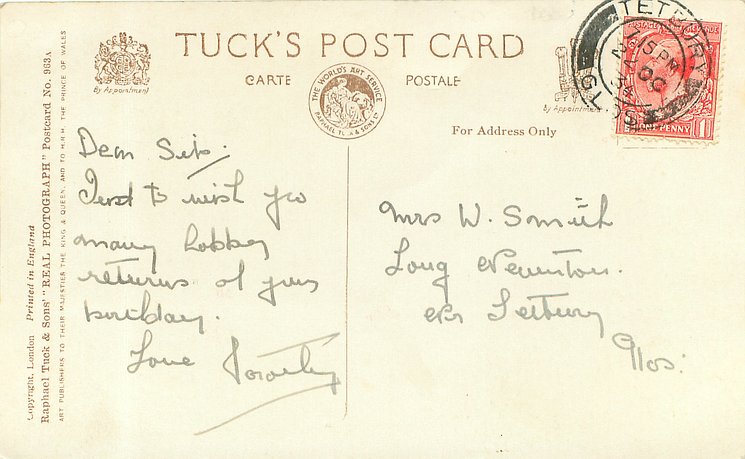 TUCK'S POST CARD
CARTE POSTALE
By Appointment
THE WORLD'S ART SERVICE
RAPHAEL TUCK & SONS LTD
By Appointment
For Address Only
TETBURY
7.15 PM
OC
34
GLOS
POSTAGE
ONE PENNY
1
Dear Sis.
Just to wish you
many happy
returns of your
birthday.
Love Dorothy
Mrs W. Smith
Long Newnton.
Nr Tetbury
Glos.
Copyright, London Printed in England
Raphael Tuck & Sons' "REAL PHOTOGRAPH" Postcard No. 963A
ART PUBLISHERS TO THEIR MAJESTIES THE KING & QUEEN, AND TO H.R.H. THE PRINCE OF WALES